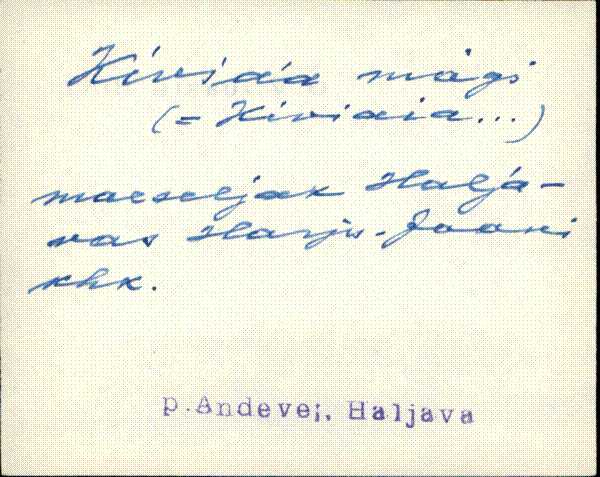 Kiviáia mägi
(= Kiviaia...)
maeseljak Haljá-
vas Harju-Jaani
khk.
p.Andevei, Haljava